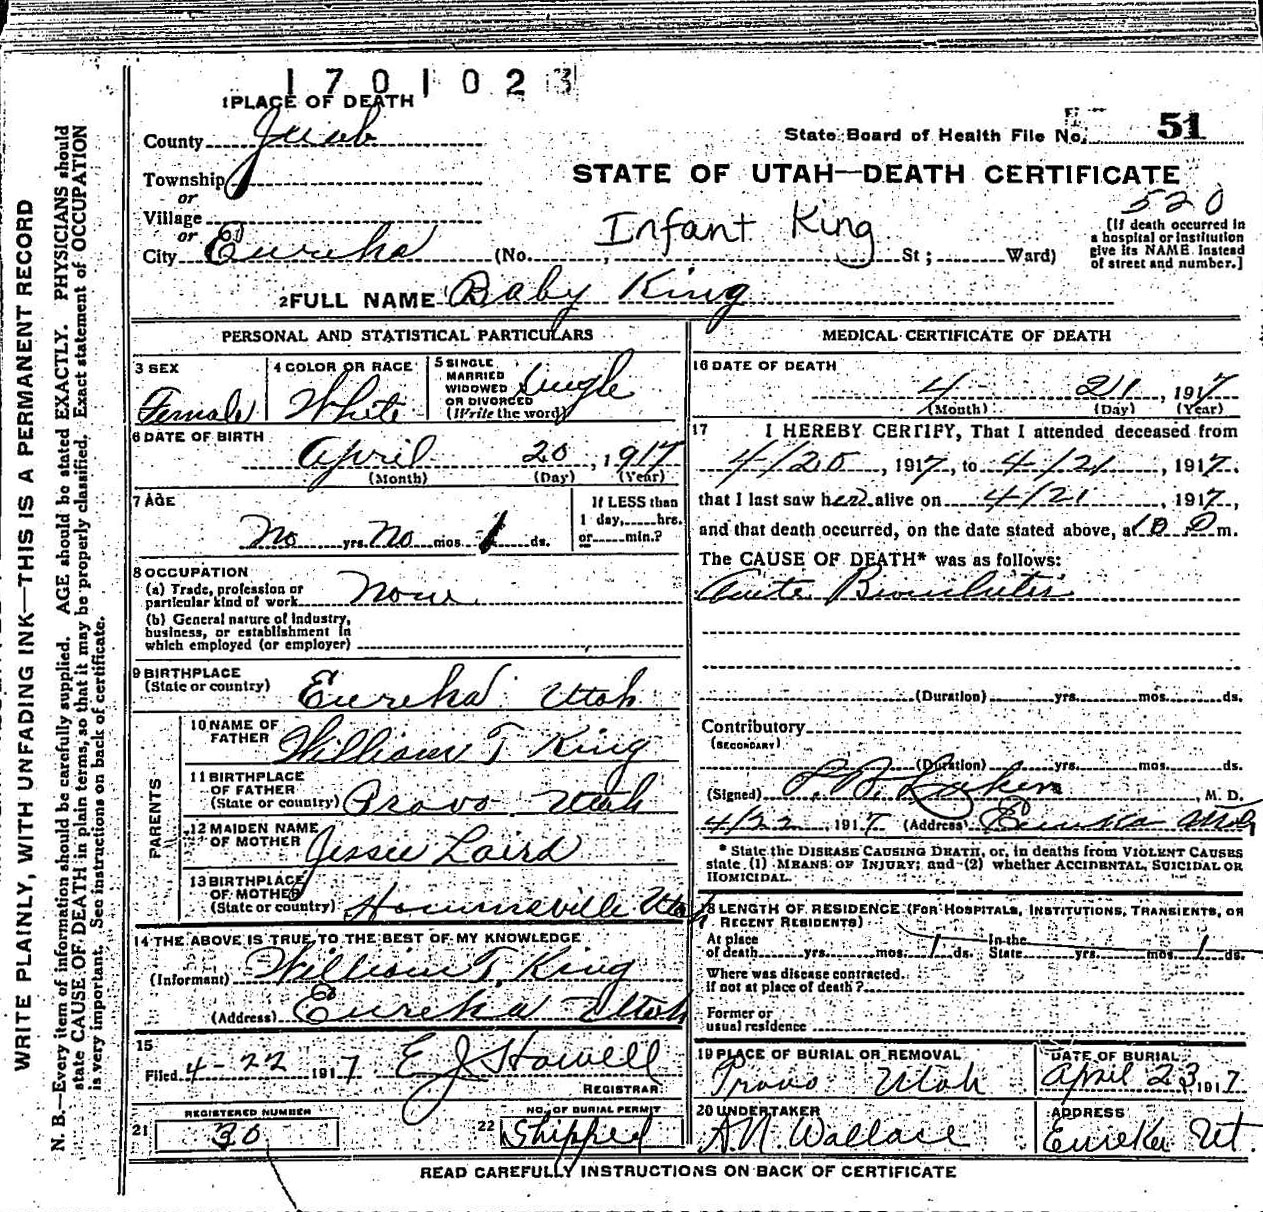 1701023
1 PLACE OF DEATH
County Juab
State Board of Health File No. 51
Township
STATE OF UTAH—DEATH CERTIFICATE
or
520
Village
or
Infant King
[If death occurred in a hospital or institution give its NAME instead of street and number.]
City Eureka (No. , St; Ward)
2 FULL NAME Baby King
PERSONAL AND STATISTICAL PARTICULARS
3 SEX
Female
4 COLOR OR RACE
White
5 SINGLE
MARRIED
WIDOWED
OR DIVORCED
(Write the word)
Single
6 DATE OF BIRTH
April 20, 1917
(Month) (Day) (Year)
7 AGE
No yrs. No mos. 1 ds.
If LESS than
1 day, hrs.
or min.?
8 OCCUPATION
(a) Trade, profession or
particular kind of work None
(b) General nature of industry,
business, or establishment in
which employed (or employer)
9 BIRTHPLACE
(State or country) Eureka Utah
PARENTS
10 NAME OF
FATHER William T King
11 BIRTHPLACE
OF FATHER
(State or country) Provo Utah
12 MAIDEN NAME
OF MOTHER Jessie Laird
13 BIRTHPLACE
OF MOTHER
(State or country) Utah
14 THE ABOVE IS TRUE TO THE BEST OF MY KNOWLEDGE
(Informant) William T. King
(Address) Eureka Utah
15
Filed 4-22 1917 E J Howell
REGISTRAR
REGISTERED NUMBER
21 30
NO. OF BURIAL PERMIT
22 Shipped
MEDICAL CERTIFICATE OF DEATH
16 DATE OF DEATH
4 - 21, 1917
(Month) (Day) (Year)
17 I HEREBY CERTIFY, That I attended deceased from
4/20, 1917, to 4/21, 1917.
that I last saw her alive on 4/21, 1917,
and that death occurred, on the date stated above, at m.
The CAUSE OF DEATH* was as follows:
Acute Bronchitis
(Duration) yrs. mos. ds.
Contributory
(SECONDARY)
(Duration) yrs. mos. ds.
(Signed) M. D.
4/22, 1917 (Address) Eureka Utah
* State the DISEASE CAUSING DEATH, or, in deaths from VIOLENT CAUSES
state (1) MEANS OF INJURY; and (2) whether ACCIDENTAL, SUICIDAL OR
HOMICIDAL.
18 LENGTH OF RESIDENCE (FOR HOSPITALS, INSTITUTIONS, TRANSIENTS, OR
RECENT RESIDENTS)
At place In the
of death yrs. mos. 1 ds. State yrs. mos. 1 ds.
Where was disease contracted.
if not at place of death?
Former or
usual residence
19 PLACE OF BURIAL OR REMOVAL
Provo Utah
DATE OF BURIAL
April 23, 1917
20 UNDERTAKER
A.N. Wallace
ADDRESS
Eureka Ut.
READ CAREFULLY INSTRUCTIONS ON BACK OF CERTIFICATE
WRITE PLAINLY, WITH UNFADING INK—THIS IS A PERMANENT RECORD
N. B.—Every item of information should be carefully supplied. AGE should be stated EXACTLY. PHYSICIANS should
state CAUSE OF DEATH in plain terms, so that it may be properly classified. Exact statement of OCCUPATION
is very important. See instructions on back of certificate.